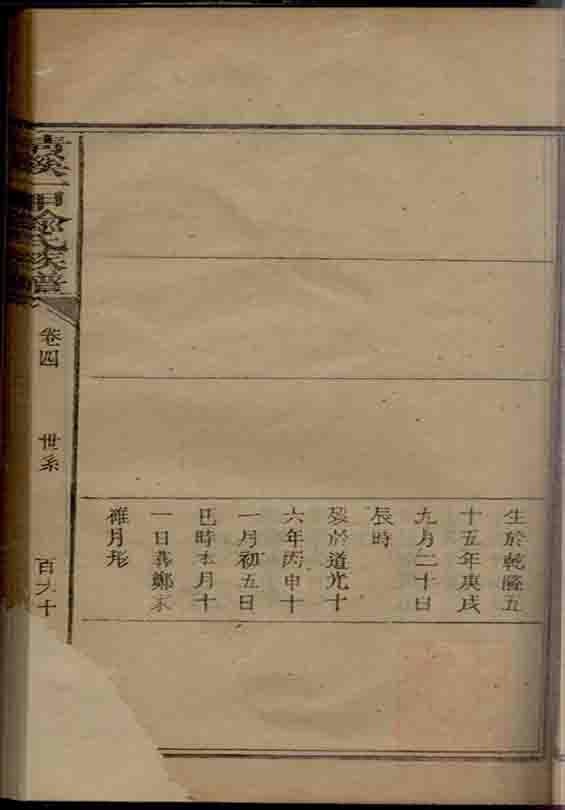 生於乾隆五
十五年庚戌
九月二十日
辰時
歿於道光十
六年丙申十
一月初五日
巳時本月十
一日葬鄭家
雅月形
一甲余氏族譜
卷四
世系
百六十